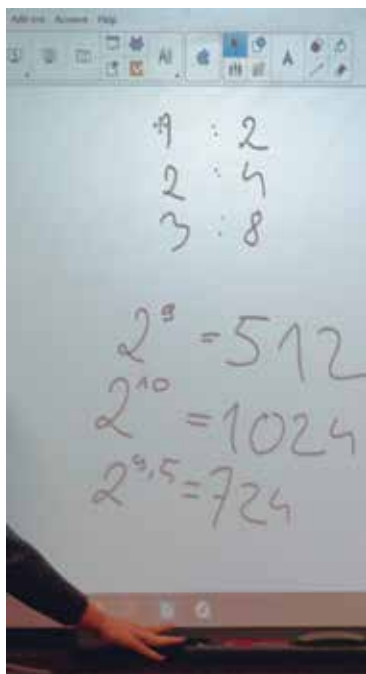 Add-ons Account Help
1 : 2
2 : 4
3 : 8
2⁹ = 512
2¹⁰ = 1024
2⁹,⁵ = 724